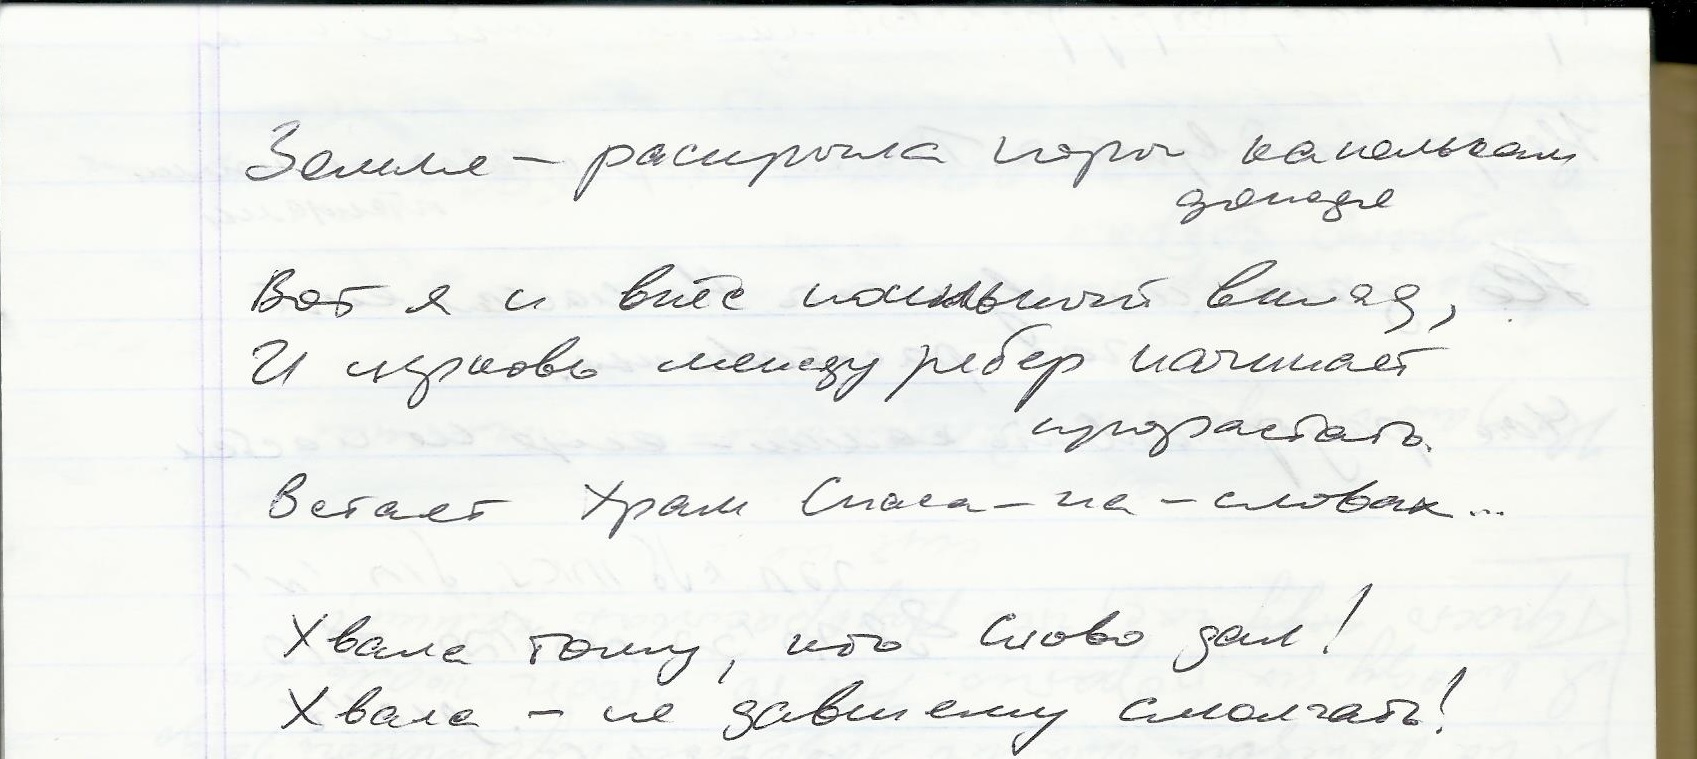 Земля – раскрыла поры капелькам
дождя
Вот я и внёс посильный вклад,
И церковь между рёбер начинает
прорастать.
Встаёт Храм Спаса-на-словах...
Хвала тому, кто Слово дал!
Хвала – не давшему смолчать!